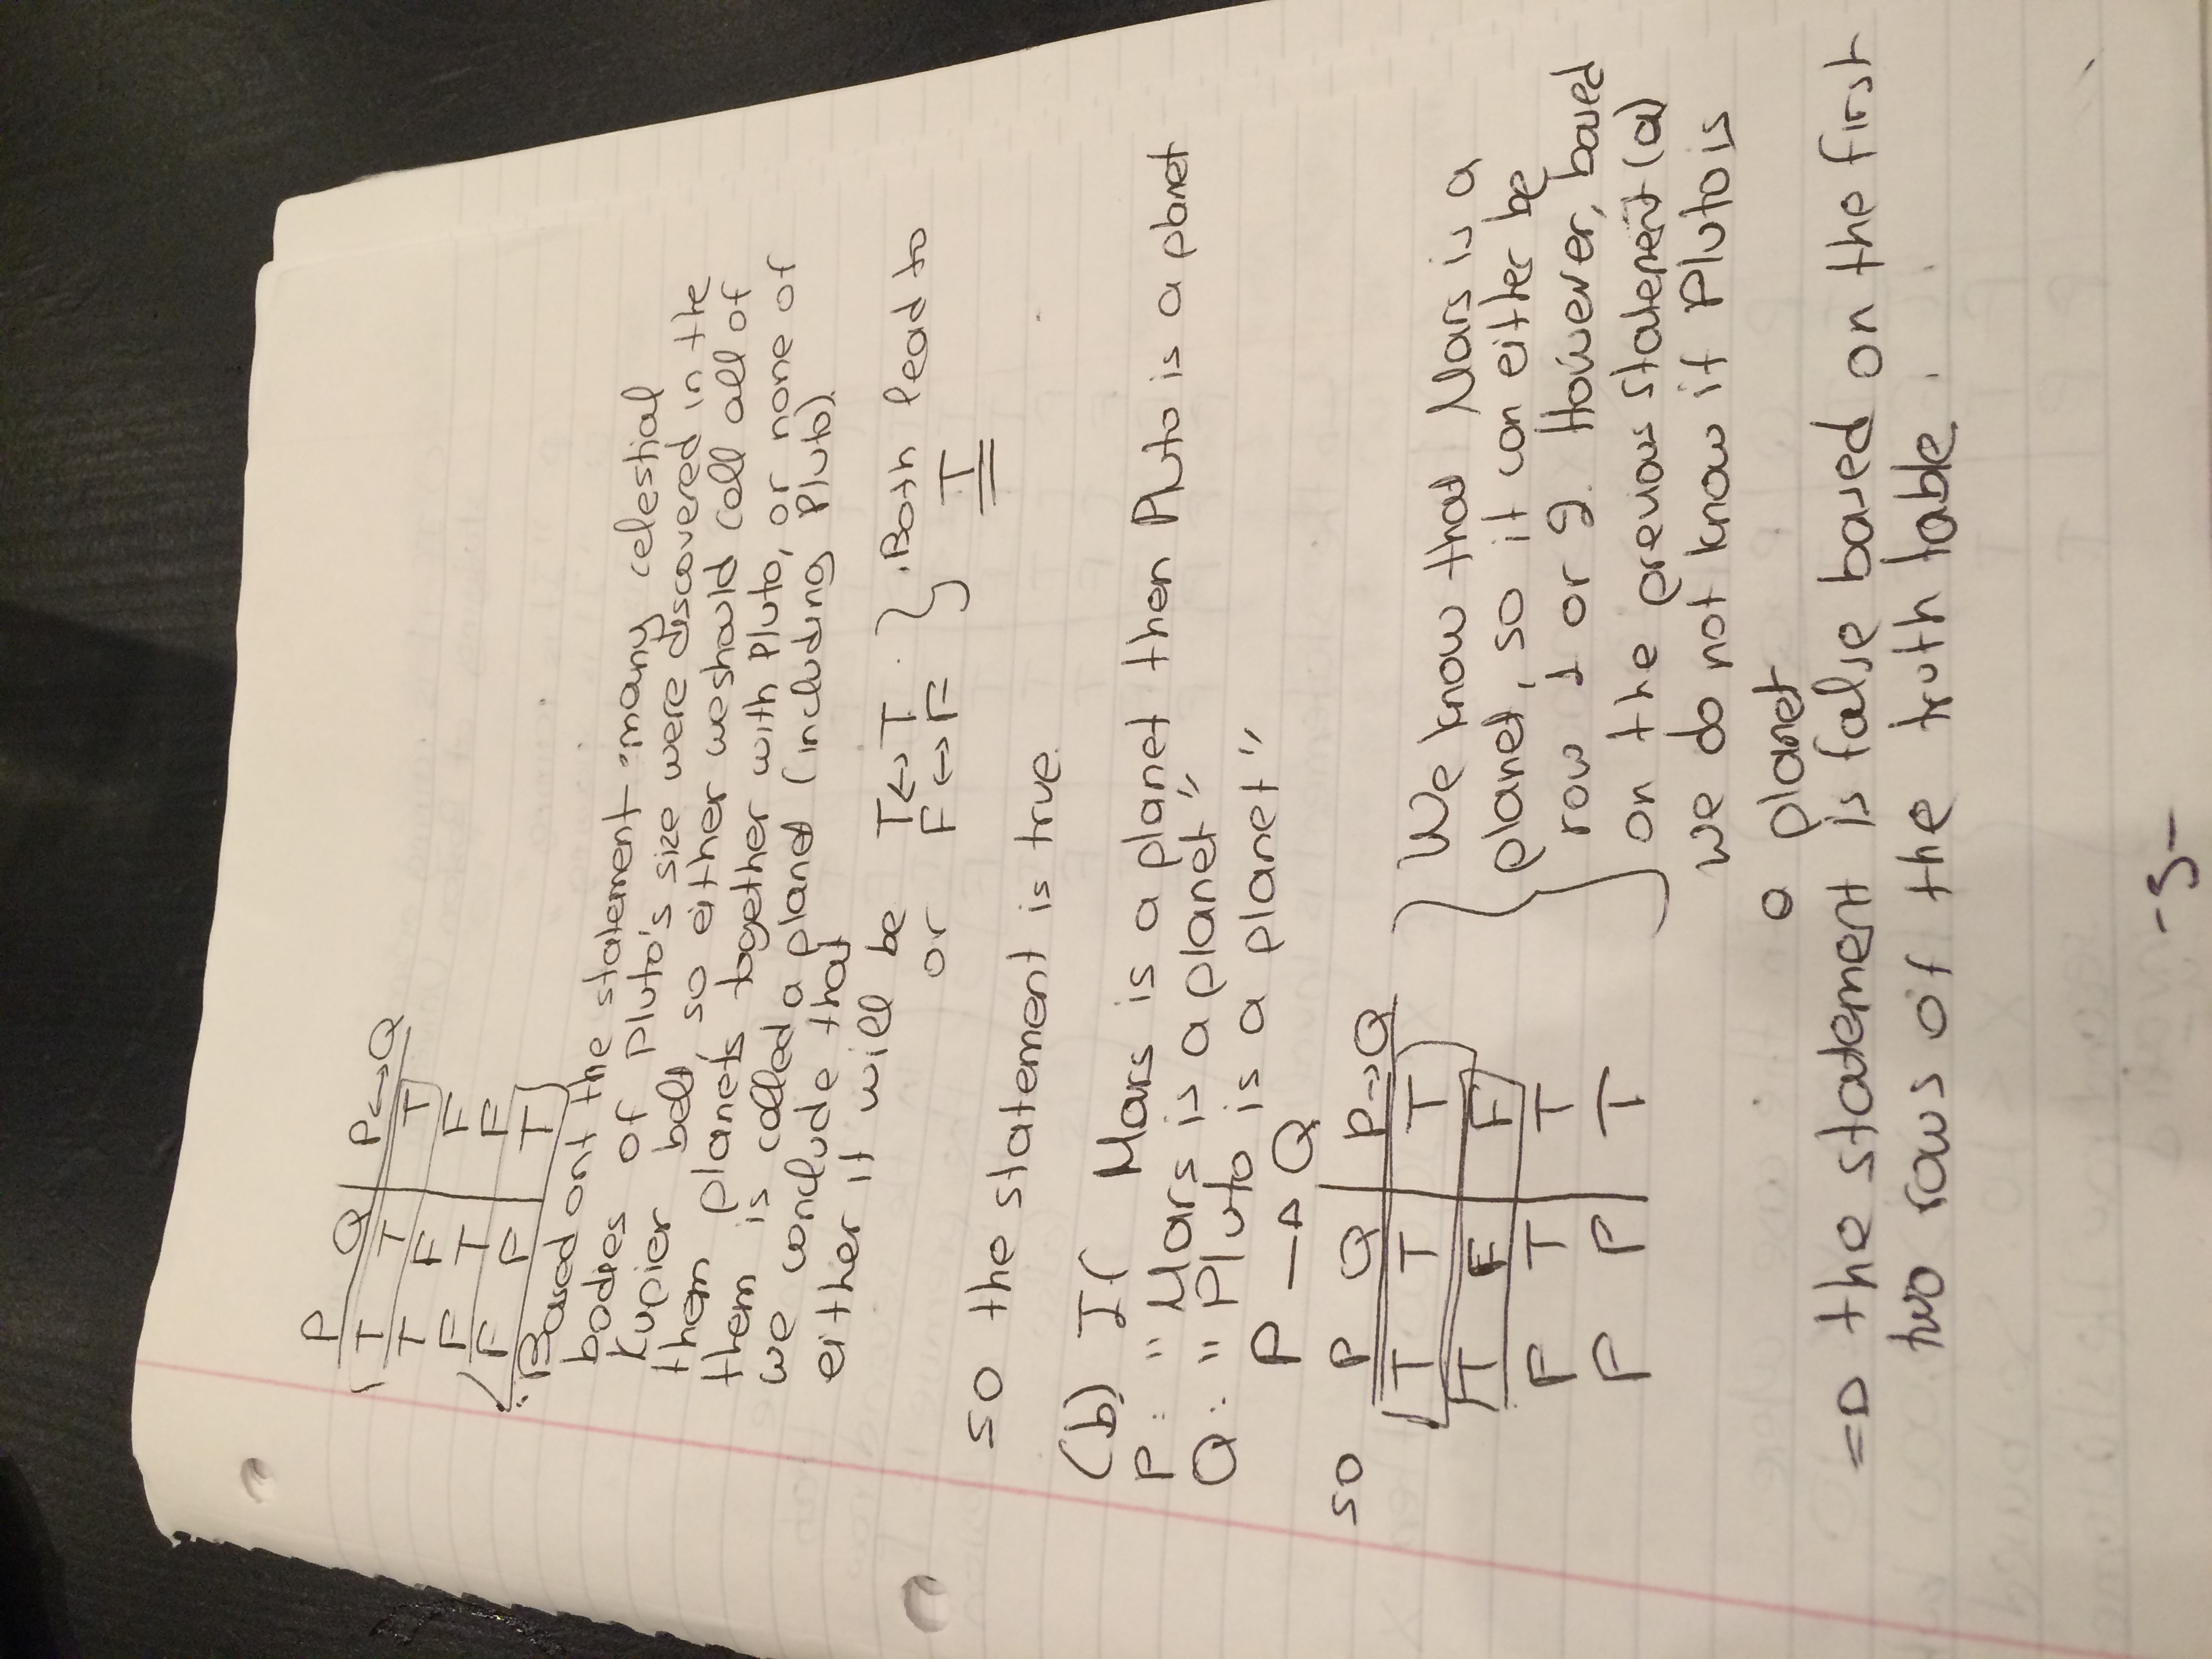 P Q P↔Q
T T T
T F F
F T F
F F T
Based ont the statement many celestial
bodies of Pluto's size were discovered in the
Kupier belt, so either we should call all of
them planets together with Pluto, or none of
them is called a planet (including Pluto).
we conclude that
either it will be T↔T
or F↔F
Both lead to
T
so the statement is true.
(b) If Mars is a planet then Pluto is a planet
P: "Mars is a planet"
Q: "Pluto is a planet"
P → Q
so P Q P→Q
T T T
T F F
F T T
F F T
We know that Mars is a
planet, so it can either be
row 1 or 2. However, based
on the previous statement (a)
we do not know if Pluto is
a planet
⇒ the statement is false based on the first
two rows of the truth table.
-5-